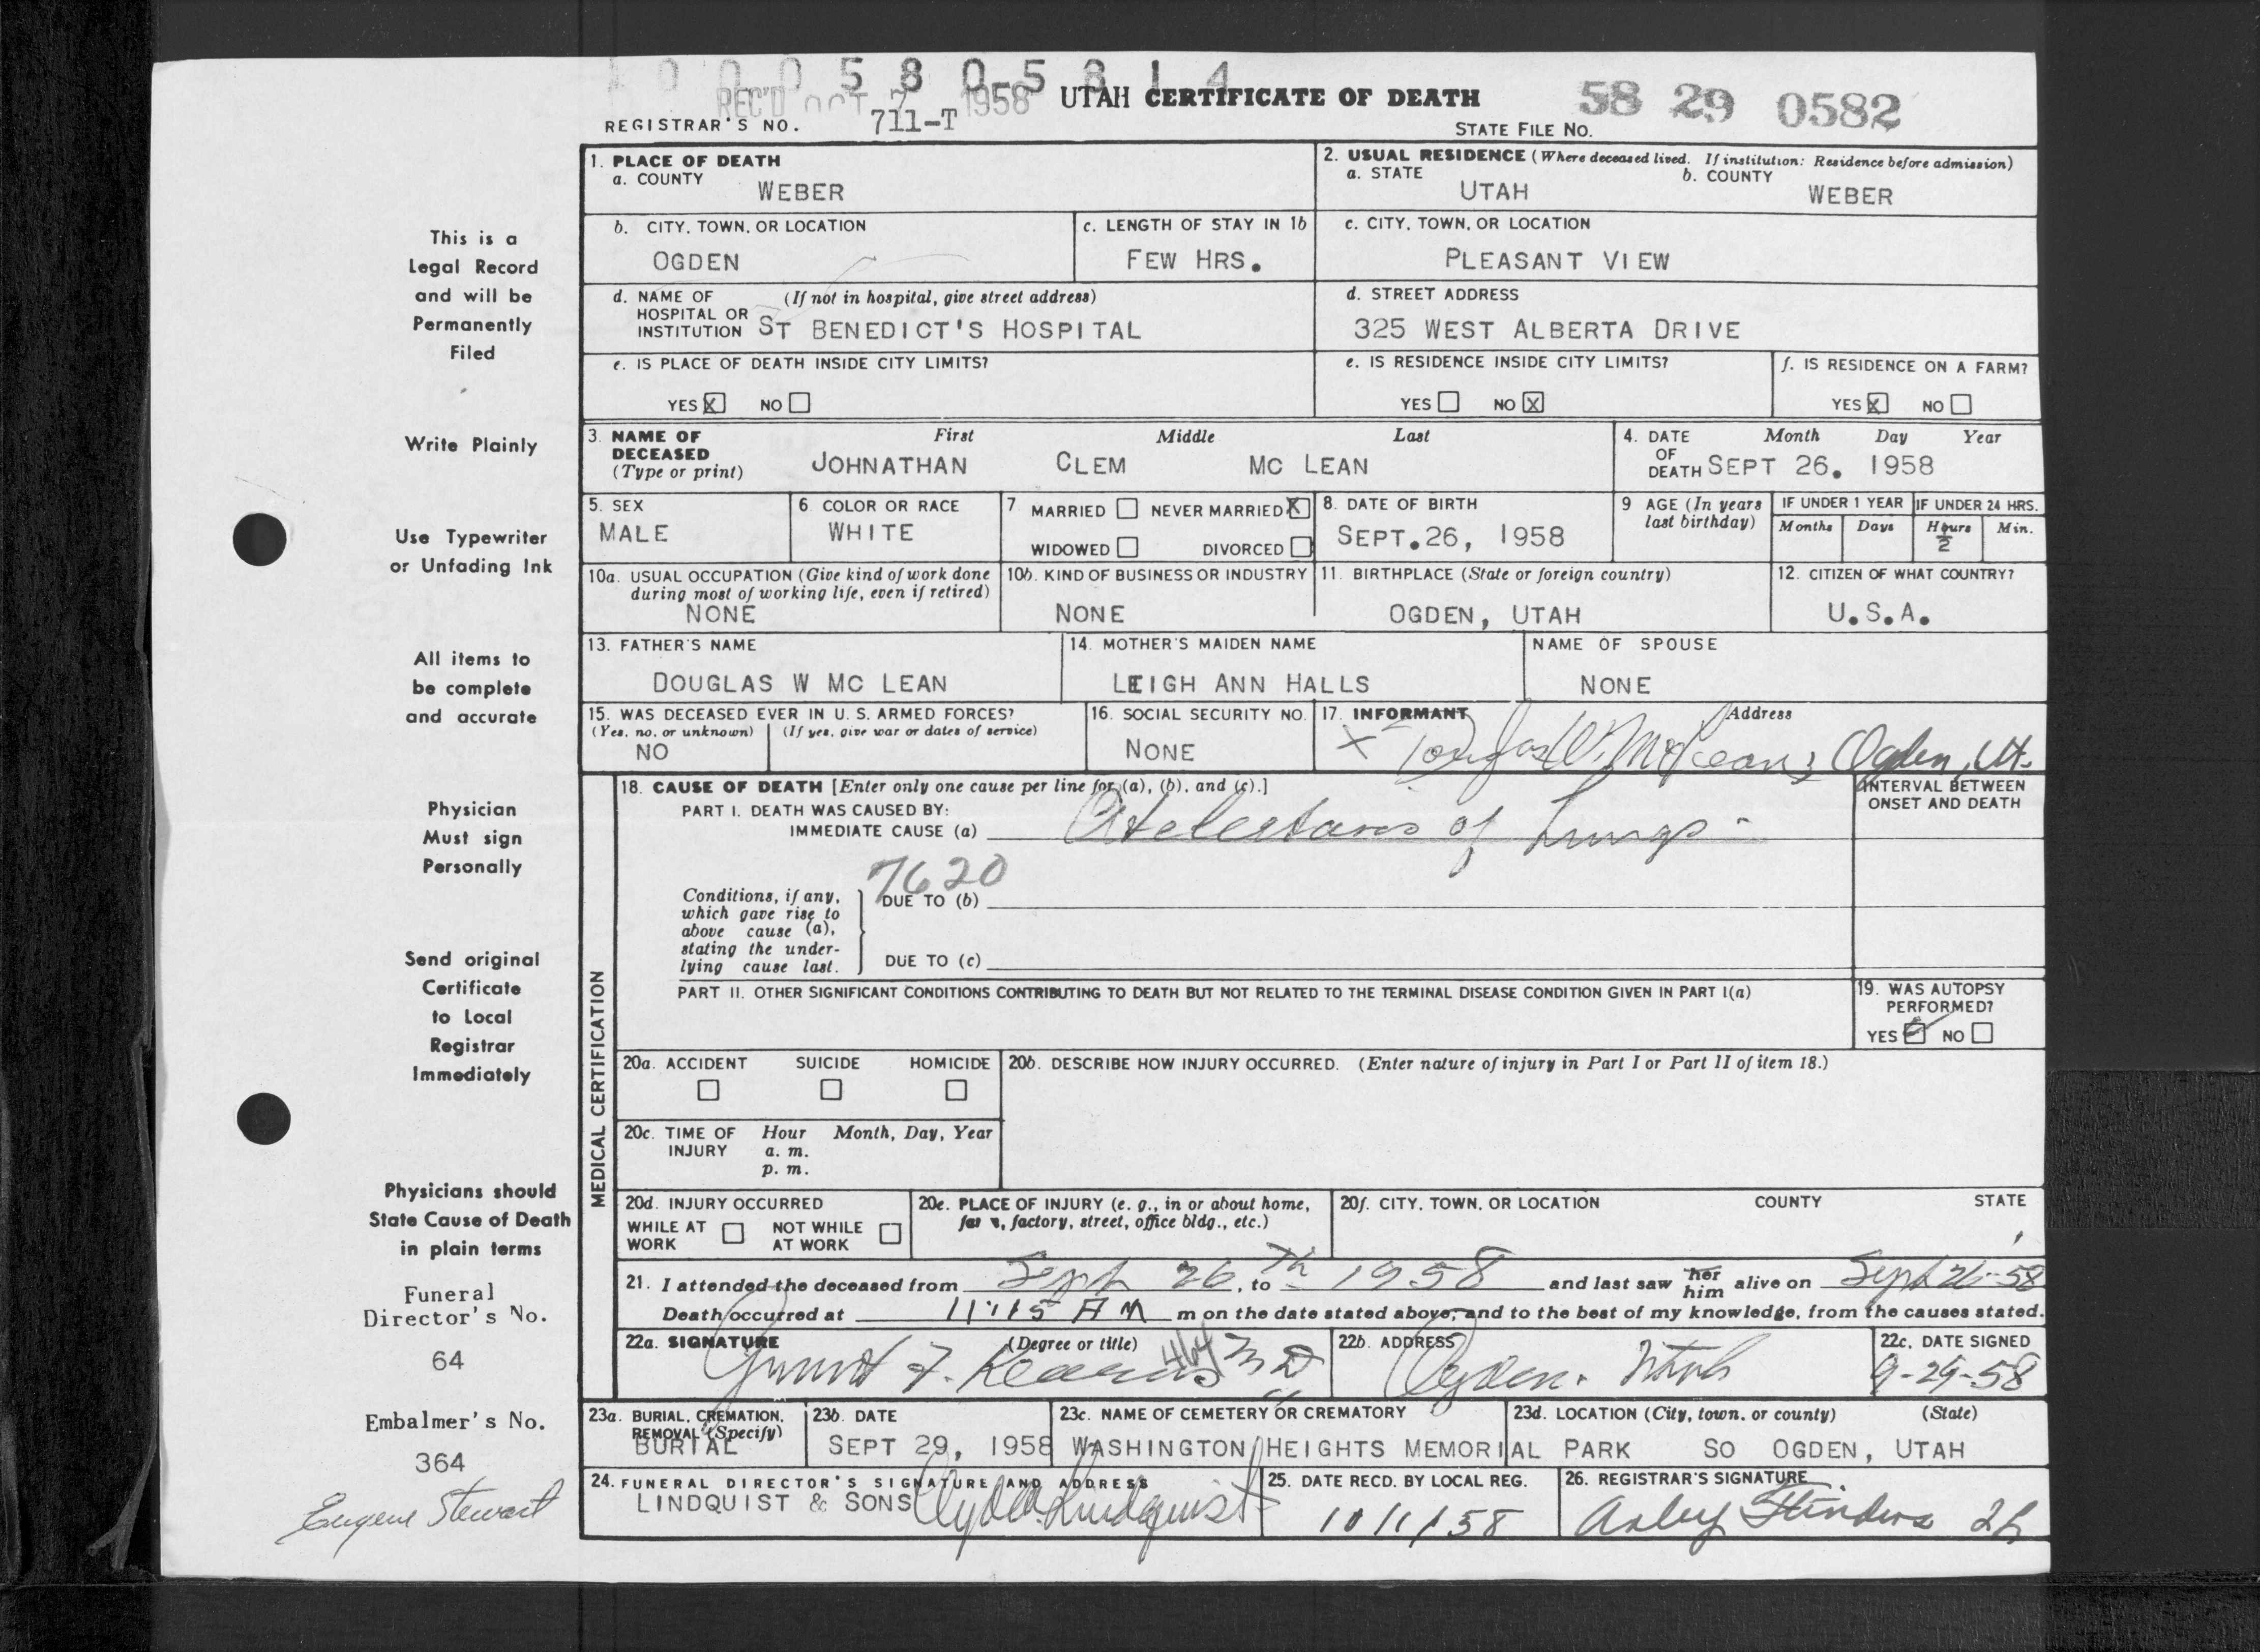 1 0 0 0 5 8 0 5 8 1 4
REC'D OCT 7 1958 UTAH CERTIFICATE OF DEATH 58 29 0582
REGISTRAR'S NO. 711-T STATE FILE NO.
1. PLACE OF DEATH
a. COUNTY WEBER
2. USUAL RESIDENCE (Where deceased lived. If institution: Residence before admission)
a. STATE UTAH b. COUNTY WEBER
b. CITY, TOWN, OR LOCATION OGDEN
c. LENGTH OF STAY IN 1b FEW HRS.
c. CITY, TOWN, OR LOCATION PLEASANT VIEW
d. NAME OF HOSPITAL OR INSTITUTION (If not in hospital, give street address) ST BENEDICT'S HOSPITAL
d. STREET ADDRESS 325 WEST ALBERTA DRIVE
e. IS PLACE OF DEATH INSIDE CITY LIMITS?
YES X NO
e. IS RESIDENCE INSIDE CITY LIMITS?
YES NO X
f. IS RESIDENCE ON A FARM?
YES X NO
3. NAME OF DECEASED (Type or print) First Middle Last
JOHNATHAN CLEM MC LEAN
4. DATE OF DEATH Month Day Year
SEPT 26. 1958
5. SEX MALE
6. COLOR OR RACE WHITE
7 MARRIED NEVER MARRIED X
WIDOWED DIVORCED
8. DATE OF BIRTH SEPT.26, 1958
9 AGE (In years last birthday)
IF UNDER 1 YEAR Months Days
IF UNDER 24 HRS. Hours Min.
2
10a. USUAL OCCUPATION (Give kind of work done during most of working life, even if retired)
NONE
10b. KIND OF BUSINESS OR INDUSTRY
NONE
11. BIRTHPLACE (State or foreign country)
OGDEN, UTAH
12. CITIZEN OF WHAT COUNTRY?
U.S.A.
13. FATHER'S NAME
DOUGLAS W MC LEAN
14. MOTHER'S MAIDEN NAME
LEIGH ANN HALLS
NAME OF SPOUSE
NONE
15. WAS DECEASED EVER IN U. S. ARMED FORCES?
(Yes, no, or unknown) (If yes, give war or dates of service)
NO
16. SOCIAL SECURITY NO.
NONE
17. INFORMANT Address
X Douglas W. McLean, Ogden, Ut.
18. CAUSE OF DEATH [Enter only one cause per line for (a), (b), and (c).]
INTERVAL BETWEEN ONSET AND DEATH
PART I. DEATH WAS CAUSED BY:
IMMEDIATE CAUSE (a) Atelectasis of Lungs -
7620
Conditions, if any, which gave rise to above cause (a), stating the underlying cause last.
DUE TO (b)
DUE TO (c)
PART II. OTHER SIGNIFICANT CONDITIONS CONTRIBUTING TO DEATH BUT NOT RELATED TO THE TERMINAL DISEASE CONDITION GIVEN IN PART I(a)
19. WAS AUTOPSY PERFORMED?
YES ✓ NO
MEDICAL CERTIFICATION
20a. ACCIDENT SUICIDE HOMICIDE
20b. DESCRIBE HOW INJURY OCCURRED. (Enter nature of injury in Part I or Part II of item 18.)
20c. TIME OF INJURY Hour Month, Day, Year
a. m.
p. m.
20d. INJURY OCCURRED
WHILE AT WORK NOT WHILE AT WORK
20e. PLACE OF INJURY (e. g., in or about home, farm, factory, street, office bldg., etc.)
20f. CITY, TOWN, OR LOCATION COUNTY STATE
21. I attended the deceased from Sept 26th, to 1958 and last saw her him alive on Sept 26-58
Death occurred at 11:15 AM m on the date stated above, and to the best of my knowledge, from the causes stated.
22a. SIGNATURE (Degree or title)
464 M D
22b. ADDRESS
Ogden. Utah
22c. DATE SIGNED
9-29-58
23a. BURIAL, CREMATION, REMOVAL (Specify)
BURIAL
23b. DATE
SEPT 29, 1958
23c. NAME OF CEMETERY OR CREMATORY
WASHINGTON HEIGHTS MEMORIAL PARK
23d. LOCATION (City, town, or county) (State)
SO OGDEN, UTAH
24. FUNERAL DIRECTOR'S SIGNATURE AND ADDRESS
LINDQUIST & SONS Clyde Lindquist
25. DATE RECD. BY LOCAL REG.
10/1/58
26. REGISTRAR'S SIGNATURE
This is a
Legal Record
and will be
Permanently
Filed
Write Plainly
Use Typewriter
or Unfading Ink
All items to
be complete
and accurate
Physician
Must sign
Personally
Send original
Certificate
to Local
Registrar
Immediately
Physicians should
State Cause of Death
in plain terms
Funeral
Director's No.
64
Embalmer's No.
364
Eugene Stewart